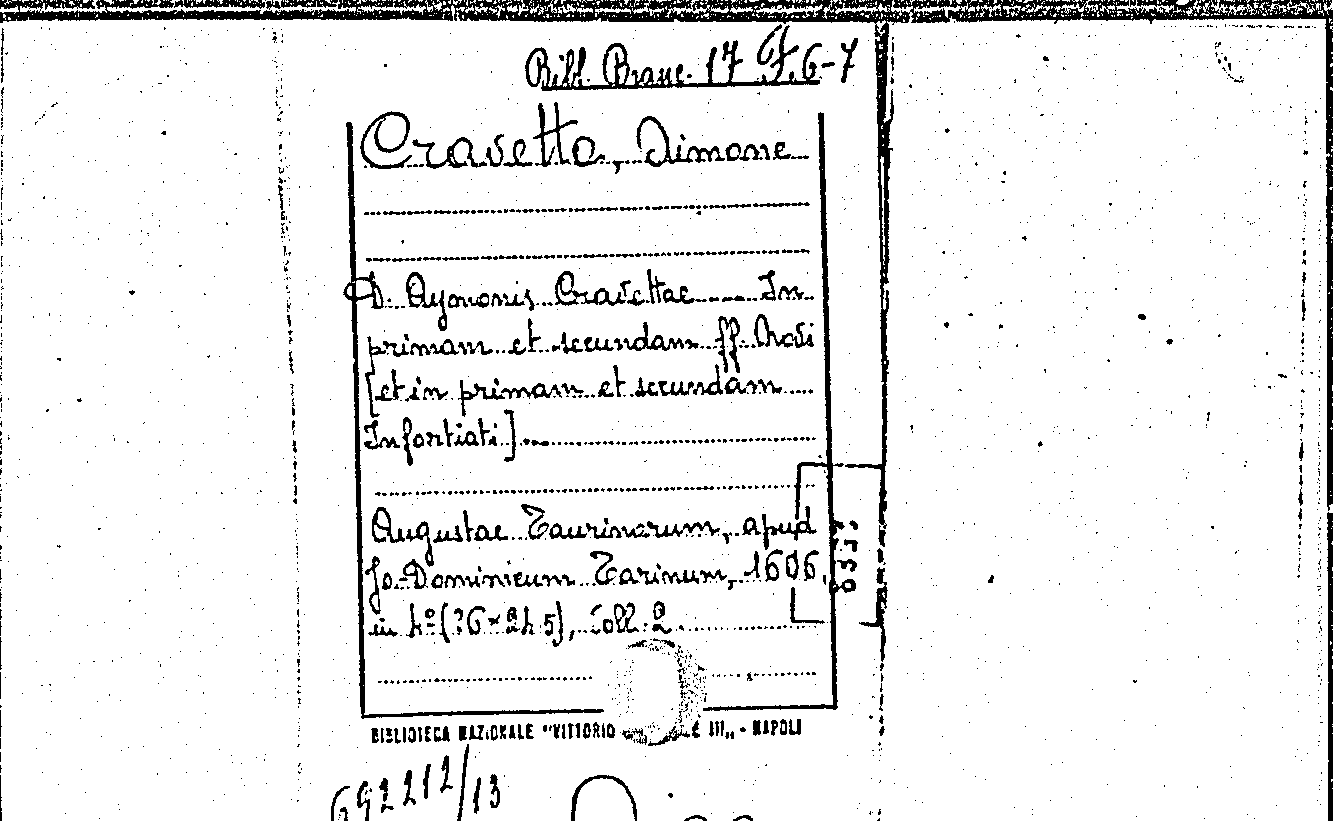 Bibl. Branc. 17 F. 6-7
Cravetta, Aimone
D. Aymonis Cravettae ..... In
primam et secundam ff. Novi
[et in primam et secundam
Infortiati]...
Augustae Taurinorum, apud
Jo. Dominicum Tarinum, 1606,
in 4° (36 × 24,5), voll. 2.
BIBLIOTECA NAZIONALE "VITTORIO III„ - NAPOLI
692212/13